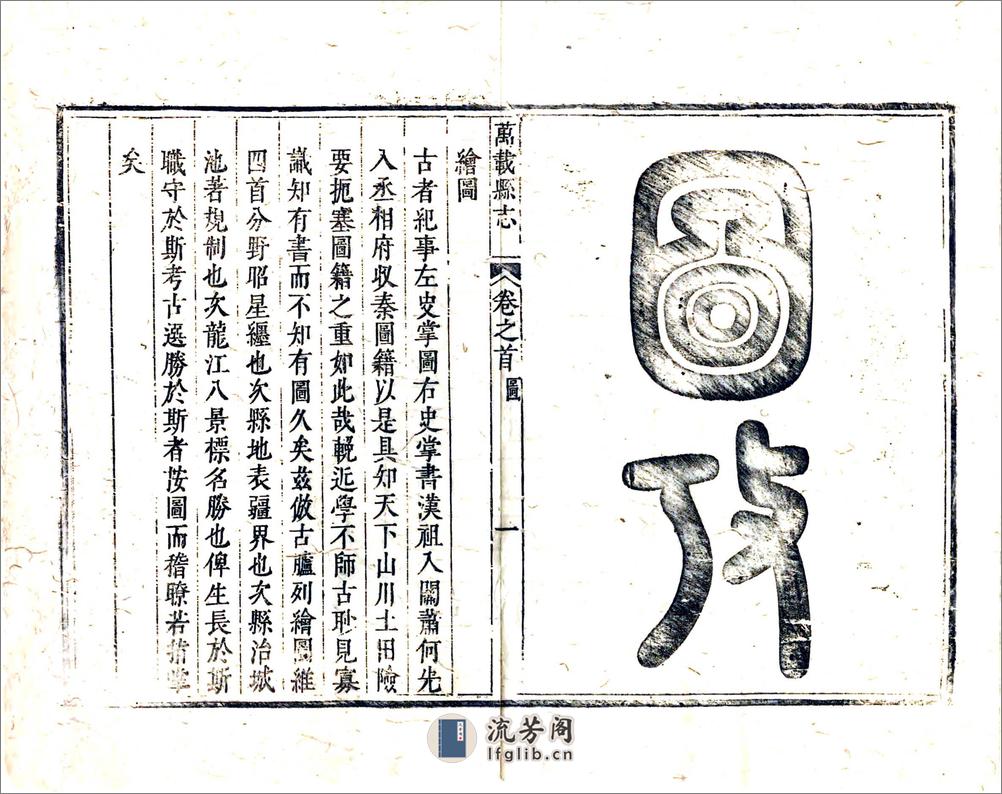 圖攷
萬載縣志 卷之首 圖 一
繪圖
古者紀事左史掌圖右史掌書漢祖入關蕭何先
入丞相府収秦圖籍以是具知天下山川土田險
要扼塞圖籍之重如此哉輓近學不師古眇見寡
識知有書而不知有圖久矣茲倣古臚列繪圖維
四首分野昭星纏也次縣地表疆界也次縣治城
池著規制也次龍江八景標名勝也俾生長於斯
職守於斯考古選勝於斯者按圖而稽瞭若指掌
矣
流芳阁
lfglib.cn